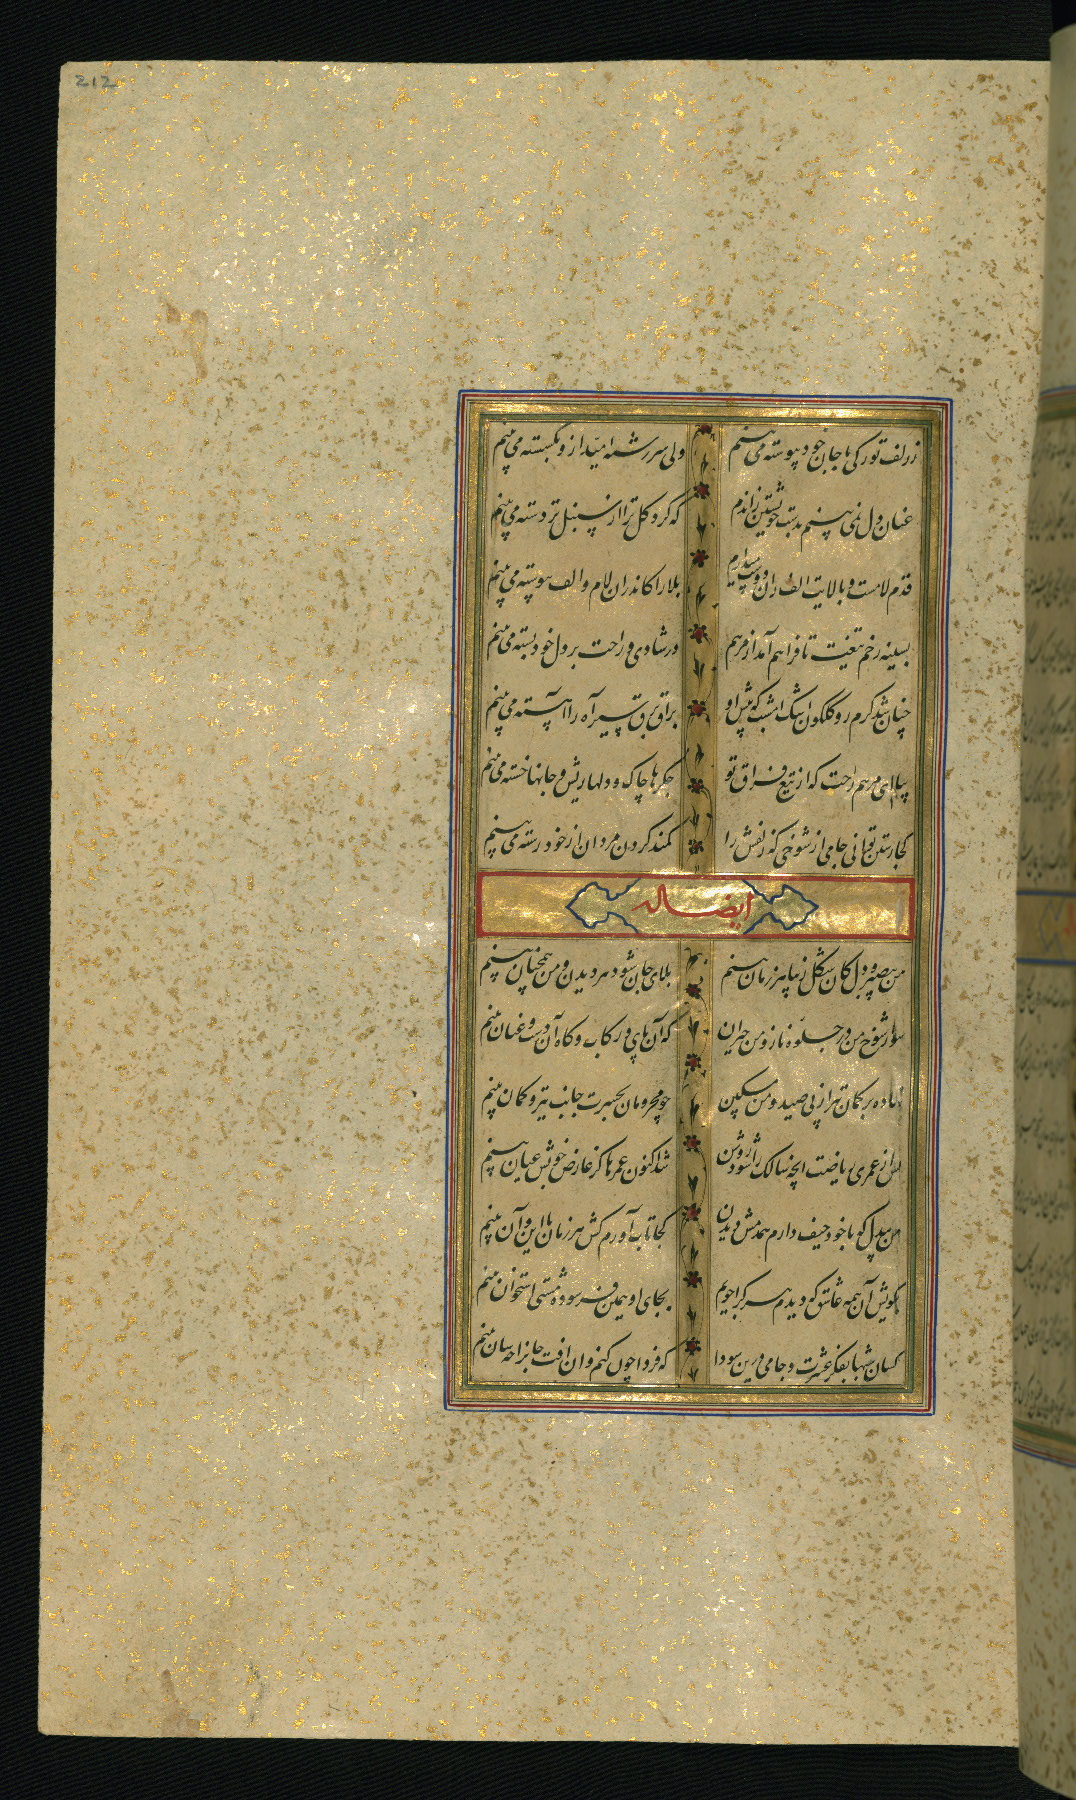 212
ز زلف تو رگی با جان خود پیوسته می‌بینم ولی سررشته امید ازو بگسسته می‌بینم
عنان دل نمی‌بینم بدست خویشتن زاندم که گرد گل ترا از سنبل تر دسته می‌بینم
قدم لامست و بالایت الف زان دو بلا را کاندران لام و الف پیوسته می‌بینم
بسینه زخم تیغت تا فراهم آمد از مرهم در شادی و راحت بر دل خود بسته می‌بینم
چنان شد گرم رو گلگون اشک امشب که پیش او براق برق سیر آه را آهسته می‌بینم
بیا ای مرهم راحت که از تیغ فراق تو جگرها چاک و دلها ریش و جانها خسته می‌بینم
کجا رستن توانی جامی از شوخی که زلفش را کمند گردن مردان از خود رسته می‌بینم
ایضا له
من بیصبر و دل کان شکل زیبا هر زمان بینم بلای جان شود هر دیدن و من همچنان بینم
سوار شوخ من در جلوه ناز و من حیران که آن پای و رکاب و گاه آن دست و عنان بینم
نهاده بر کمان تیر از پی صید و من مسکین چو محرومان بحسرت جانب تیر و کمان بینم
پس از عمری ریاضت آنچه سالک را شود روشن شد اکنون عمرها کز عارض خوبش عیان بینم
من بیدل که با خود حیف دارم همدمش دیدن کجا تاب آورم کش هر زمان با این و آن بینم
بکویش آن همه عاشق که دیدم هر کرا جویم بجای او همین فرسوده مشتی استخوان بینم
کسان شبها بفکر عشرت و جامی درین سودا که فردا چون کنم وان آفت جانرا چسان بینم